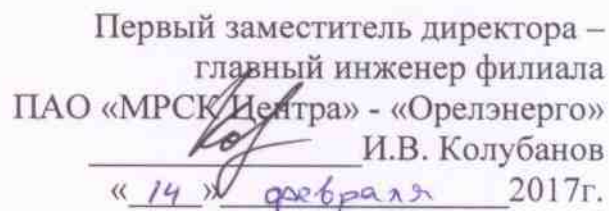 Первый заместитель директора –
главный инженер филиала
ПАО «МРСК Центра» - «Орелэнерго»
И.В. Колубанов
« 14 » февраля 2017г.